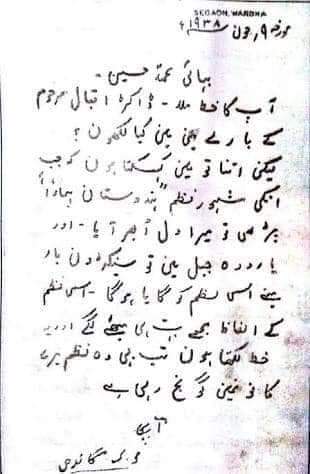 SEGAON, WARDHA
مورخہ ۹ جون ۱۹۳۸ء
بھائی محمد حسین -
آپ کا خط ملا - ڈاکٹر اقبال مرحوم
کے بارے میں میں کیا لکھوں ؟
لیکن اتنا تو میں کہسکتا ہوں کہ جب
انکی مشہور نظم "ہندوستان ہمارا"
پڑھی تو میرا دل ابھر آیا - اور
یارودہ جیل میں تو سینکڑوں بار
مینے اس نظم کو گایا ہوگا - اس نظم
کے الفاظ مجھے بہت ہی میٹھے لگے اور یہ
خط لکھتا ہوں تب بھی وہ نظم میرے
کانوں میں گونج رہی ہے
آپکا
م ک گاندھی